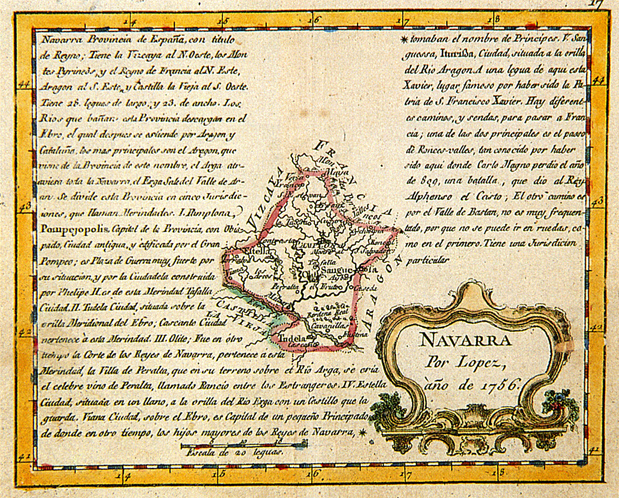 17
14 15 16 17
Navarra Provincia de España, con titulo
de Reyno; Tiene la Vizcaya al N. Oeste, los Mon
tes Pyrineos, y el Reyno de Francia al N. Este,
Aragon al S. Este, y Castilla la Vieja al S. Oeste.
Tiene 28. leguas de largo, y 23. de ancho. Los
Rios que bañan esta Provincia descargan en el
Ebro, el qual despues se estiende por Aragon y
Cataluña, los mas principales son el Aragon, que
viene de la Provincia de este nombre, el Arga atr-
aviesa toda la Navarra, el Ezga Sale del Valle de Ar-
an. Se divide esta Provincia en cinco Jurisdic-
iones, que llaman Merindades. I. Pamplona,
Pompejopolis, Capital de la Provincia, con Obis
pado, Ciudad antigua, y edificada por el Gran
Pompeo; es Plaza de Guerra muy fuerte por
su situacion, y por la Ciudadela construida
por Phelipe II. es de esta Merindad Tafalla
Ciudad. II. Tudela Ciudad, situada sobre la
orilla Meridional del Ebro; Cascante Ciudad
pertenece à esta Merindad. III. Olite; Fue en otro
tiempo la Corte de los Reyes de Navarra, pertenece à esta
Merindad, la Villa de Peralta, que en su terreno sobre el Rio Arga, se cria
el celebre vino de Peralta, llamado Rancio entre los Estrangeros. IV. Estella
Ciudad, situada en un llano, a la orilla del Rio Ezga con un Castillo que la
guarda. Viana Ciudad, sobre el Ebro, es Capital de un pequeño Principado
de donde en otro tiempo, los hijos mayores de los Reyes de Navarra, *
* tomaban el nombre de Principes. V. San
guessa, Iturissa, Ciudad, situada a la orilla
del Rio Aragon. A una legua de aqui esta
Xavier, lugar famoso por haber sido la Pa
tria de S. Francisco Xavier. Hay diferent-
es caminos, y sendas, para pasar a Fran
cia; una de las dos principales es el paso
de Ronces-valles, tan conocido por haber
sido aqui donde Carlo Magno perdio el año
de 809, una batalla, que dio al Rey
Alphonso el Casto; El otro camino es
por el Valle de Bastan, no es muy frequen
tado, por que no se puede ir en ruedas, co-
mo en el primero. Tiene una Jurisdicion
particular
FRANCIA
VIZCAYA
ARAGON
CASTILLA
LA VIEJA
Maya
Estella
Sanguessa
Tafalla
Peralta
Caseda
Bardena Real
Cavanillas
Tudela
Cascante
NAVARRA
Por Lopez,
año de 1756.
Escala de 20 leguas.
44 43 42 41
44 43 42 41
15 16 17 18